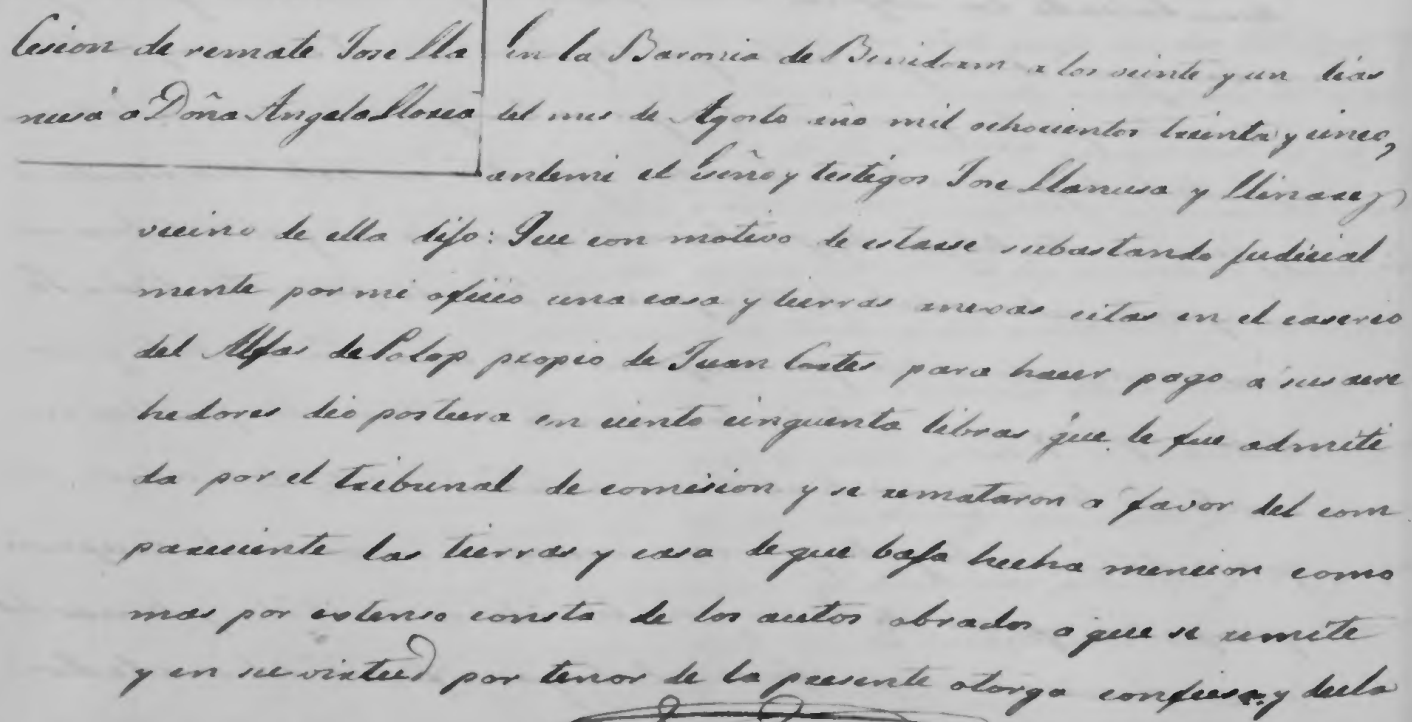 Cesion de remate Jose Lla
nusa á Doña Angela Llorca
En la Baronia de Benidorm a los veinte y un dias
del mes de Agosto año mil ochocientos treinta y cinco,
antemi el Essño y testigos Jose Llanusa y Llinares
vecino de ella dijo: Que con motivo de estarse subastando judicial
mente por mi oficio una casa y tierras anexas citas en el caserio
del Alfas de Polop propio de Juan Cortes para hacer pago á sus acre
hedores dio postura en ciento cinquenta libras que le fue admiti
da por el tribunal de comision y se remataron a favor del com
pareciente las tierras y casa de que baja hecha mencion como
mas por estenso consta de los autos obrados a que se remite
y en su virtud por tenor de la presente otorga confiesa y decla